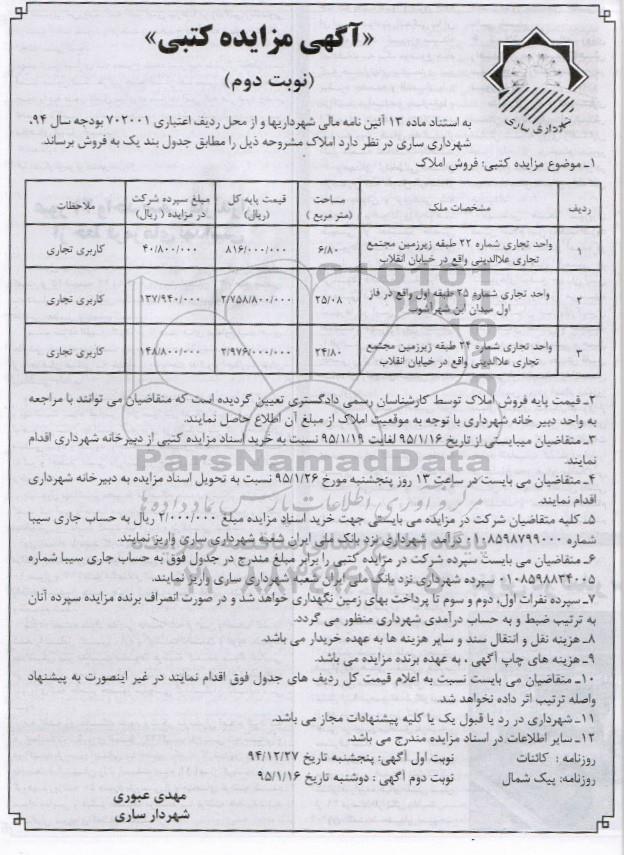 «آگهی مزایده کتبی»
(نوبت دوم)
شهرداری ساری
به استناد ماده ۱۳ آئین نامه مالی شهرداریها و از محل ردیف اعتباری ۷۰۲۰۰۱ بودجه سال ۹۴،
شهرداری ساری در نظر دارد املاک مشروحه ذیل را مطابق جدول بند یک به فروش برساند.
۱ـ موضوع مزایده کتبی: فروش املاک
ردیف | مشخصات ملک | مساحت (متر مربع) | قیمت پایه کل (ریال) | مبلغ سپرده شرکت در مزایده (ریال) | ملاحظات
۱ | واحد تجاری شماره ۲۲ طبقه زیرزمین مجتمع تجاری علاالدینی واقع در خیابان انقلاب | ۶/۸۰ | ۸۱۶/۰۰۰/۰۰۰ | ۴۰/۸۰۰/۰۰۰ | کاربری تجاری
۲ | واحد تجاری شماره ۲۵ طبقه اول واقع در فاز اول میدان ابن شهرآشوب | ۲۵/۰۸ | ۲/۷۵۸/۸۰۰/۰۰۰ | ۱۳۷/۹۴۰/۰۰۰ | کاربری تجاری
۳ | واحد تجاری شماره ۲۴ طبقه زیرزمین مجتمع تجاری علاالدینی واقع در خیابان انقلاب | ۲۴/۸۰ | ۲/۹۷۶/۰۰۰/۰۰۰ | ۱۴۸/۸۰۰/۰۰۰ | کاربری تجاری
۲ـ قیمت پایه فروش املاک توسط کارشناسان رسمی دادگستری تعیین گردیده است که متقاضیان می توانند با مراجعه
به واحد دبیر خانه شهرداری با توجه به موقعیت املاک از مبلغ آن اطلاع حاصل نمایند.
۳ـ متقاضیان میبایستی از تاریخ ۹۵/۱/۱۶ لغایت ۹۵/۱/۱۹ نسبت به خرید اسناد مزایده کتبی از دبیرخانه شهرداری اقدام
نمایند.
۴ـ متقاضیان می بایست در ساعت ۱۳ روز پنجشنبه مورخ ۹۵/۱/۲۶ نسبت به تحویل اسناد مزایده به دبیرخانه شهرداری
اقدام نمایند.
۵ـ کلیه متقاضیان شرکت در مزایده می بایستی جهت خرید اسناد مزایده مبلغ ۲/۰۰۰/۰۰۰ ریال به حساب جاری سیبا
شماره ۰۱۰۸۵۹۸۷۹۹۰۰۰ درآمد شهرداری نزد بانک ملی ایران شعبه شهرداری ساری واریز نمایند.
۶ـ متقاضیان می بایست سپرده شرکت در مزایده کتبی را برابر مبلغ مندرج در جدول فوق به حساب جاری سیبا شماره
۰۱۰۸۵۹۸۸۳۴۰۰۵ سپرده شهرداری نزد بانک ملی ایران شعبه شهرداری ساری واریز نمایند.
۷ـ سپرده نفرات اول، دوم و سوم تا پرداخت بهای زمین نگهداری خواهد شد و در صورت انصراف برنده مزایده سپرده آنان
به ترتیب ضبط و به حساب درآمدی شهرداری منظور می گردد.
۸ـ هزینه نقل و انتقال سند و سایر هزینه ها به عهده خریدار می باشد.
۹ـ هزینه های چاپ آگهی ، به عهده برنده مزایده می باشد.
۱۰ـ متقاضیان می بایست نسبت به اعلام قیمت کل ردیف های جدول فوق اقدام نمایند در غیر اینصورت به پیشنهاد
واصله ترتیب اثر داده نخواهد شد.
۱۱ـ شهرداری در رد یا قبول یک یا کلیه پیشنهادات مجاز می باشد.
۱۲ـ سایر اطلاعات در اسناد مزایده مندرج می باشد.
روزنامه : کائنات نوبت اول آگهی: پنجشنبه تاریخ ۹۴/۱۲/۲۷
روزنامه: پیک شمال نوبت دوم آگهی : دوشنبه تاریخ ۹۵/۱/۱۶
مهدی عبوری
شهردار ساری
ParsNamadData